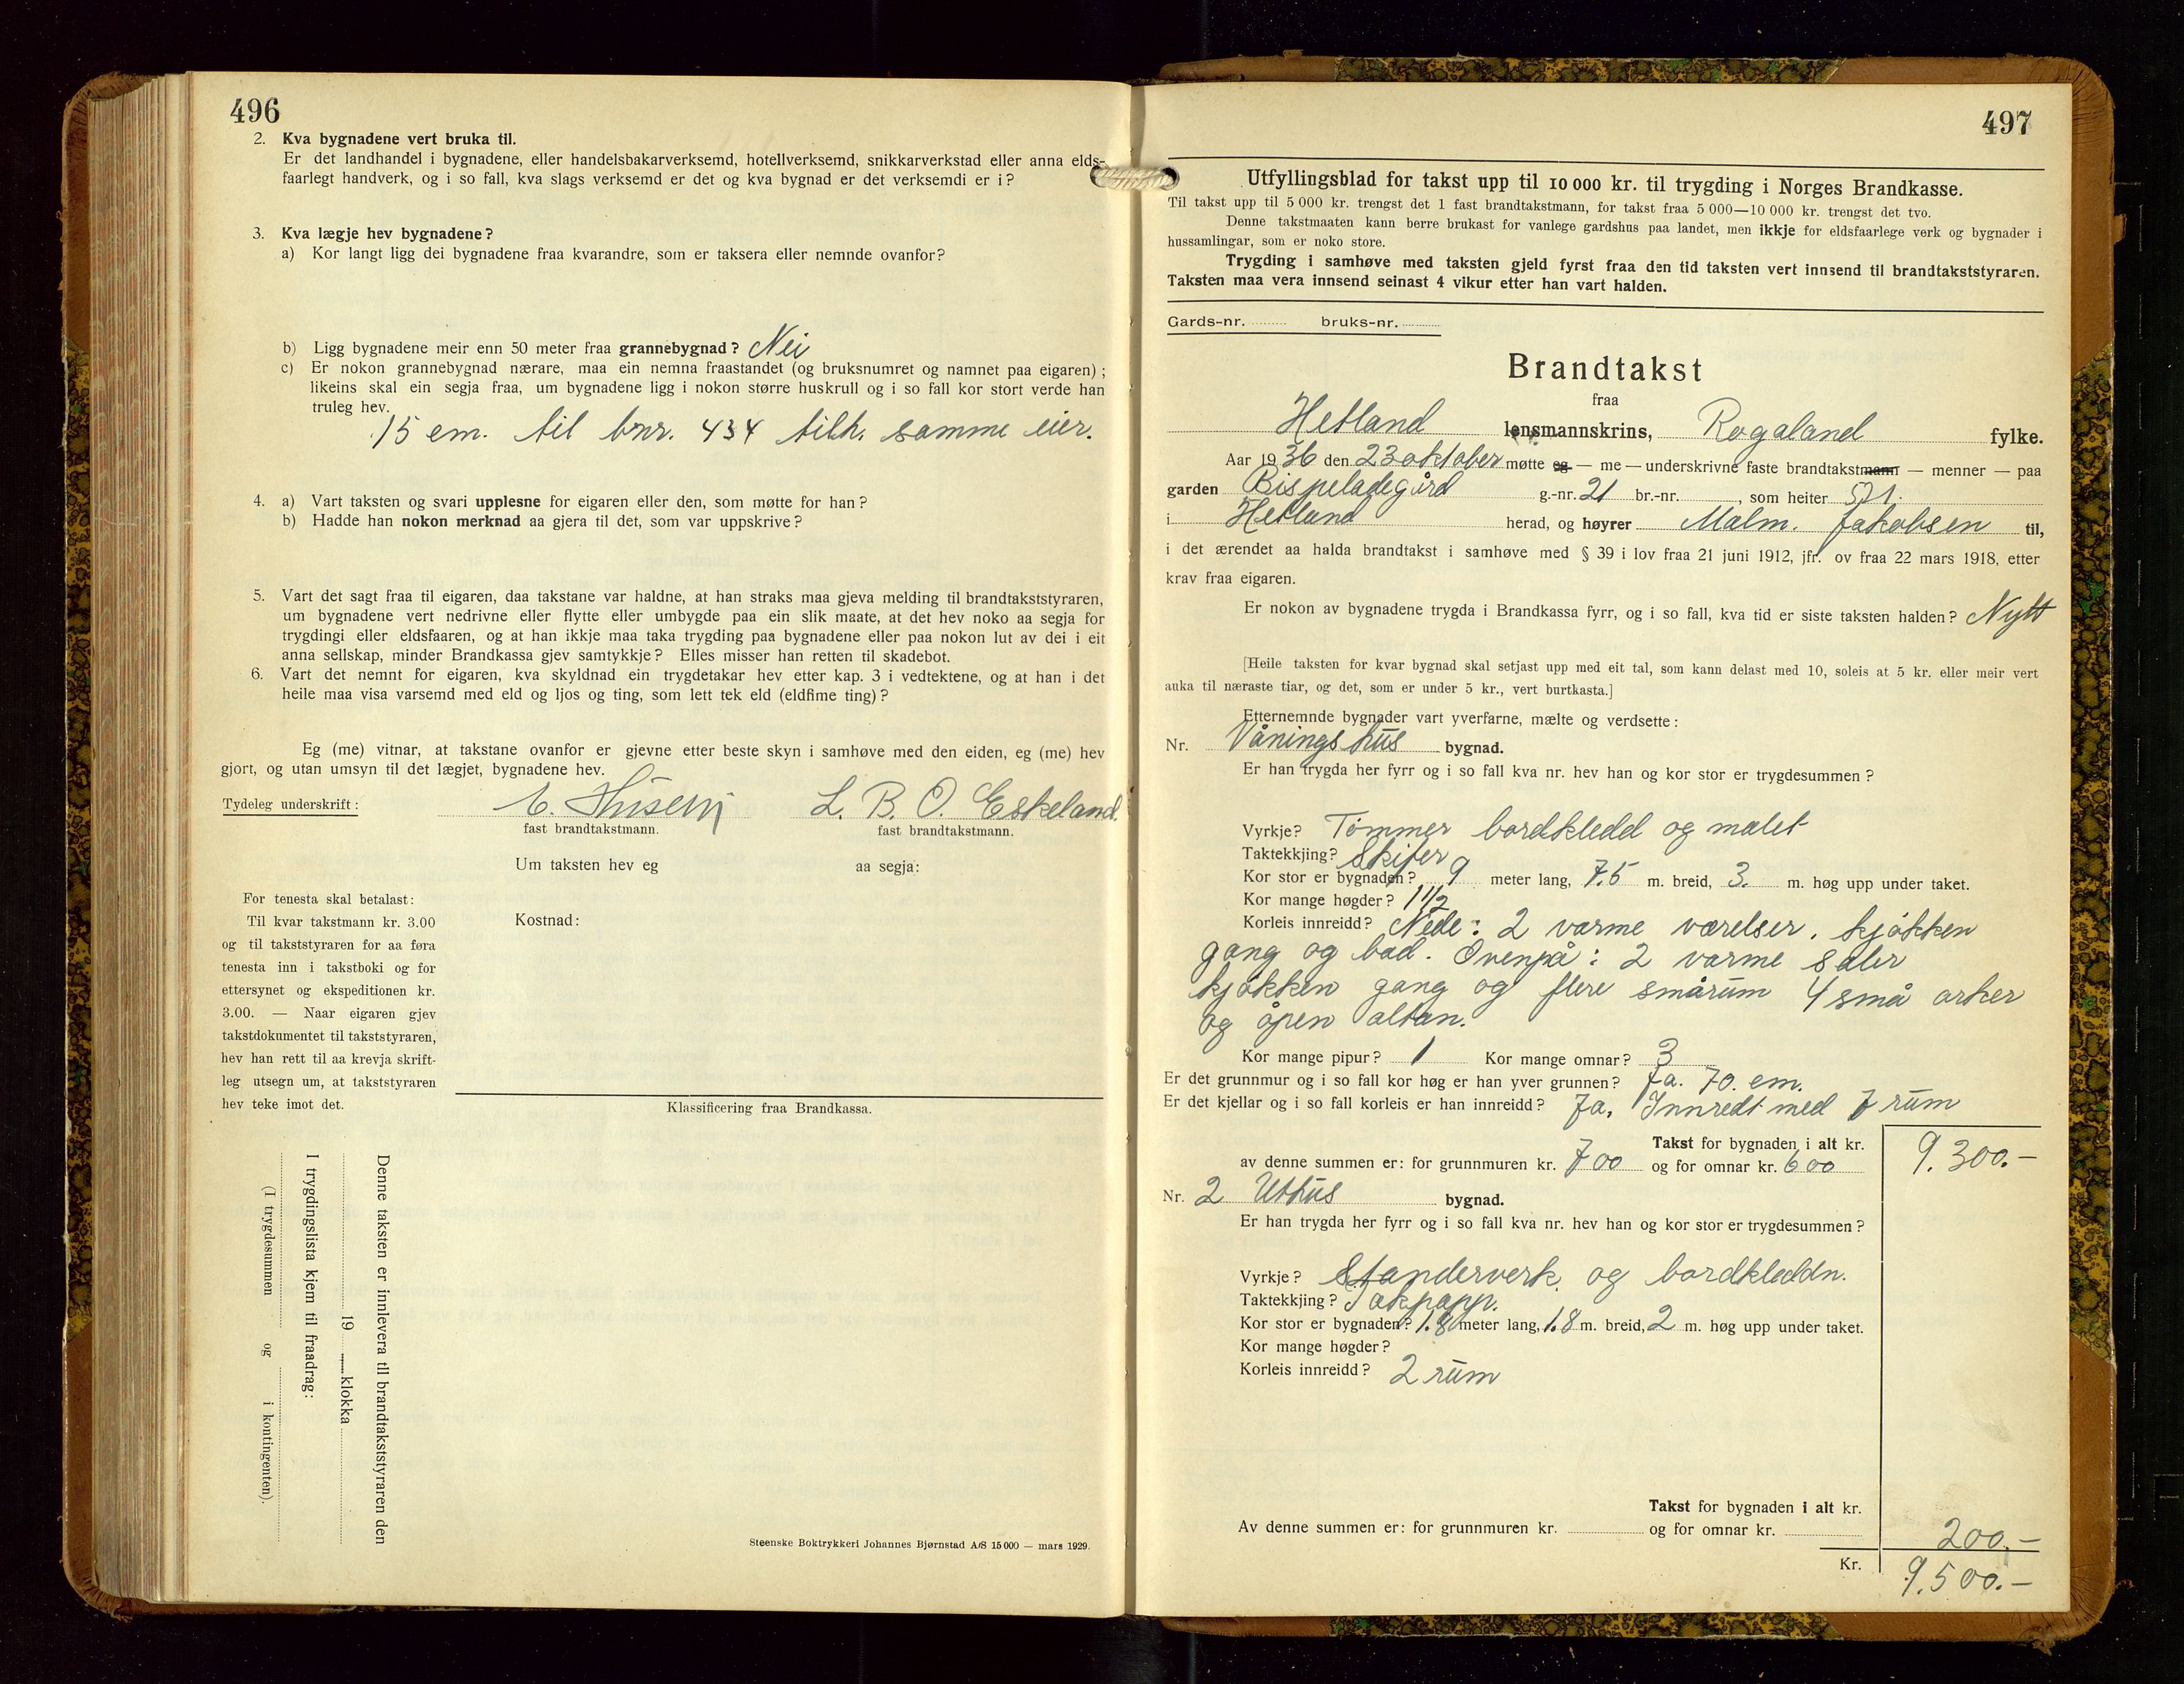 496
2. Kva bygnadene vert bruka til.
Er det landhandel i bygnadene, eller handelsbakarverksemd, hotellverksemd, snikkarverkstad eller anna elds-
faarlegt handverk, og i so fall, kva slags verksemd er det og kva bygnad er det verksemdi er i?
3. Kva lægje hev bygnadene?
a) Kor langt ligg dei bygnadene fraa kvarandre, som er taksera eller nemnde ovanfor?
b) Ligg bygnadene meir enn 50 meter fraa grannebygnad? Nei
c) Er nokon grannebygnad nærare, maa ein nemna fraastandet (og bruksnumret og namnet paa eigaren);
likeins skal ein segja fraa, um bygnadene ligg i nokon større huskrull og i so fall kor stort verde han
truleg hev.
15 em. til bnr. 434 tilh. samme eier.
4. a) Vart taksten og svari upplesne for eigaren eller den, som møtte for han?
b) Hadde han nokon merknad aa gjera til det, som var uppskrive?
5. Vart det sagt fraa til eigaren, daa takstane var haldne, at han straks maa gjeva melding til brandtakststyraren,
um bygnadene vert nedrivne eller flytte eller umbygde paa ein slik maate, at det hev noko aa segja for
trygdingi eller eldsfaaren, og at han ikkje maa taka trygding paa bygnadene eller paa nokon lut av dei i eit
anna sellskap, minder Brandkassa gjev samtykkje? Elles misser han retten til skadebot.
6. Vart det nemnt for eigaren, kva skyldnad ein trygdetakar hev etter kap. 3 i vedtektene, og at han i det
heile maa visa varsemd med eld og ljos og ting, som lett tek eld (eldfime ting)?
Eg (me) vitnar, at takstane ovanfor er gjevne etter beste skyn i samhøve med den eiden, eg (me) hev
gjort, og utan umsyn til det lægjet, bygnadene hev.
Tydeleg underskrift: L. B. O. Eskeland.
fast brandtakstmann. fast brandtakstmann.
Um taksten hev eg aa segja:
For tenesta skal betalast:
Til kvar takstmann kr. 3.00
og til takststyraren for aa føra
tenesta inn i takstboki og for
ettersynet og ekspeditionen kr.
3.00. — Naar eigaren gjev
takstdokumentet til takststyraren,
hev han rett til aa krevja skrift-
leg utsegn um, at takststyraren
hev teke imot det.
Kostnad:
Klassificering fraa Brandkassa.
Denne taksten er innlevera tll brandtakststyraren den
19 klokka
I trygdingslista kjem til fraadrag:
(I trygdesummen og i kontingenten).
Steenske Boktrykkeri Johannes Bjørnstad A/S 15 000 — mars 1929.
497
Utfyllingsblad for takst upp til 10 000 kr. til trygding i Norges Brandkasse.
Til takst upp til 5 000 kr. trengst det 1 fast brandtakstmann, for takst fraa 5 000—10 000 kr. trengst det tvo.
Denne takstmaaten kann berre brukast for vanlege gardshus paa landet, men ikkje for eldsfaarlege verk og bygnader i
hussamlingar, som er noko store.
Trygding i samhøve med taksten gjeld fyrst fraa den tid taksten vert innsend til brandtakststyraren.
Taksten maa vera innsend seinast 4 vikur etter han vart halden.
Gards-nr. bruks-nr.
Brandtakst
fraa
Hetland lensmannskrins, Rogaland fylke.
Aar 1936 den 23 oktober møtte eg — me — underskrivne faste brandtakstmann — menner — paa
garden Bispeladegård g.-nr. 21 br.-nr. , som heiter 521.
i Hetland herad, og høyrer Malm. Jakobsen til,
i det ærendet aa halda brandtakst i samhøve med § 39 i lov fraa 21 juni 1912, jfr. ov fraa 22 mars 1918, etter
krav fraa eigaren.
Er nokon av bygnadene trygda i Brandkassa fyrr, og i so fall, kva tid er siste taksten halden? Nytt
[Heile taksten for kvar bygnad skal setjast upp med eit tal, som kann delast med 10, soleis at 5 kr. eller meir vert
auka til næraste tiar, og det, som er under 5 kr., vert burtkasta.]
Etternemnde bygnader vart yverfarne, mælte og verdsette:
Nr. Våningshus bygnad.
Er han trygda her fyrr og i so fall kva nr. hev han og kor stor er trygdesummen?
Vyrkje? Tømmer bordkledd og malet
Taktekkjing? Skifer
Kor stor er bygnaden? 9 meter lang, 7.5 m. breid, 3. m. høg upp under taket.
Kor mange høgder? 1 1/2
Korleis innreidd? Nede: 2 varme værelser, kjøkken
gang og bad. Ovenpå: 2 varme saler
kjøkken gang og flere smårum 4 små arker
og åpen altan.
Kor mange pipur? 1 Kor mange omnar? 3
Er det grunnmur og i so fall kor høg er han yver grunnen? Ja. 70. em.
Er det kjellar og i so fall korleis er han innreidd? Ja, Innredt med 7 rum
Takst for bygnaden i alt kr. 9.300.-
av denne summen er: for grunnmuren kr. 700 og for omnar kr. 600
Nr. 2 Uthus bygnad.
Er han trygda her fyrr og i so fall kva nr. hev han og kor stor er trygdesummen?
Vyrkje? Standerverk og bordkleddn.
Taktekkjing? Takpapp.
Kor stor er bygnaden? 1.8 meter lang, 1.8 m. breid, 2 m. høg upp under taket.
Kor mange høgder?
Korleis innreidd? 2 rum
Takst for bygnaden i alt kr.
Av denne summen er: for grunnmuren kr. og for omnar kr. 200.-
Kr. 9.500.-